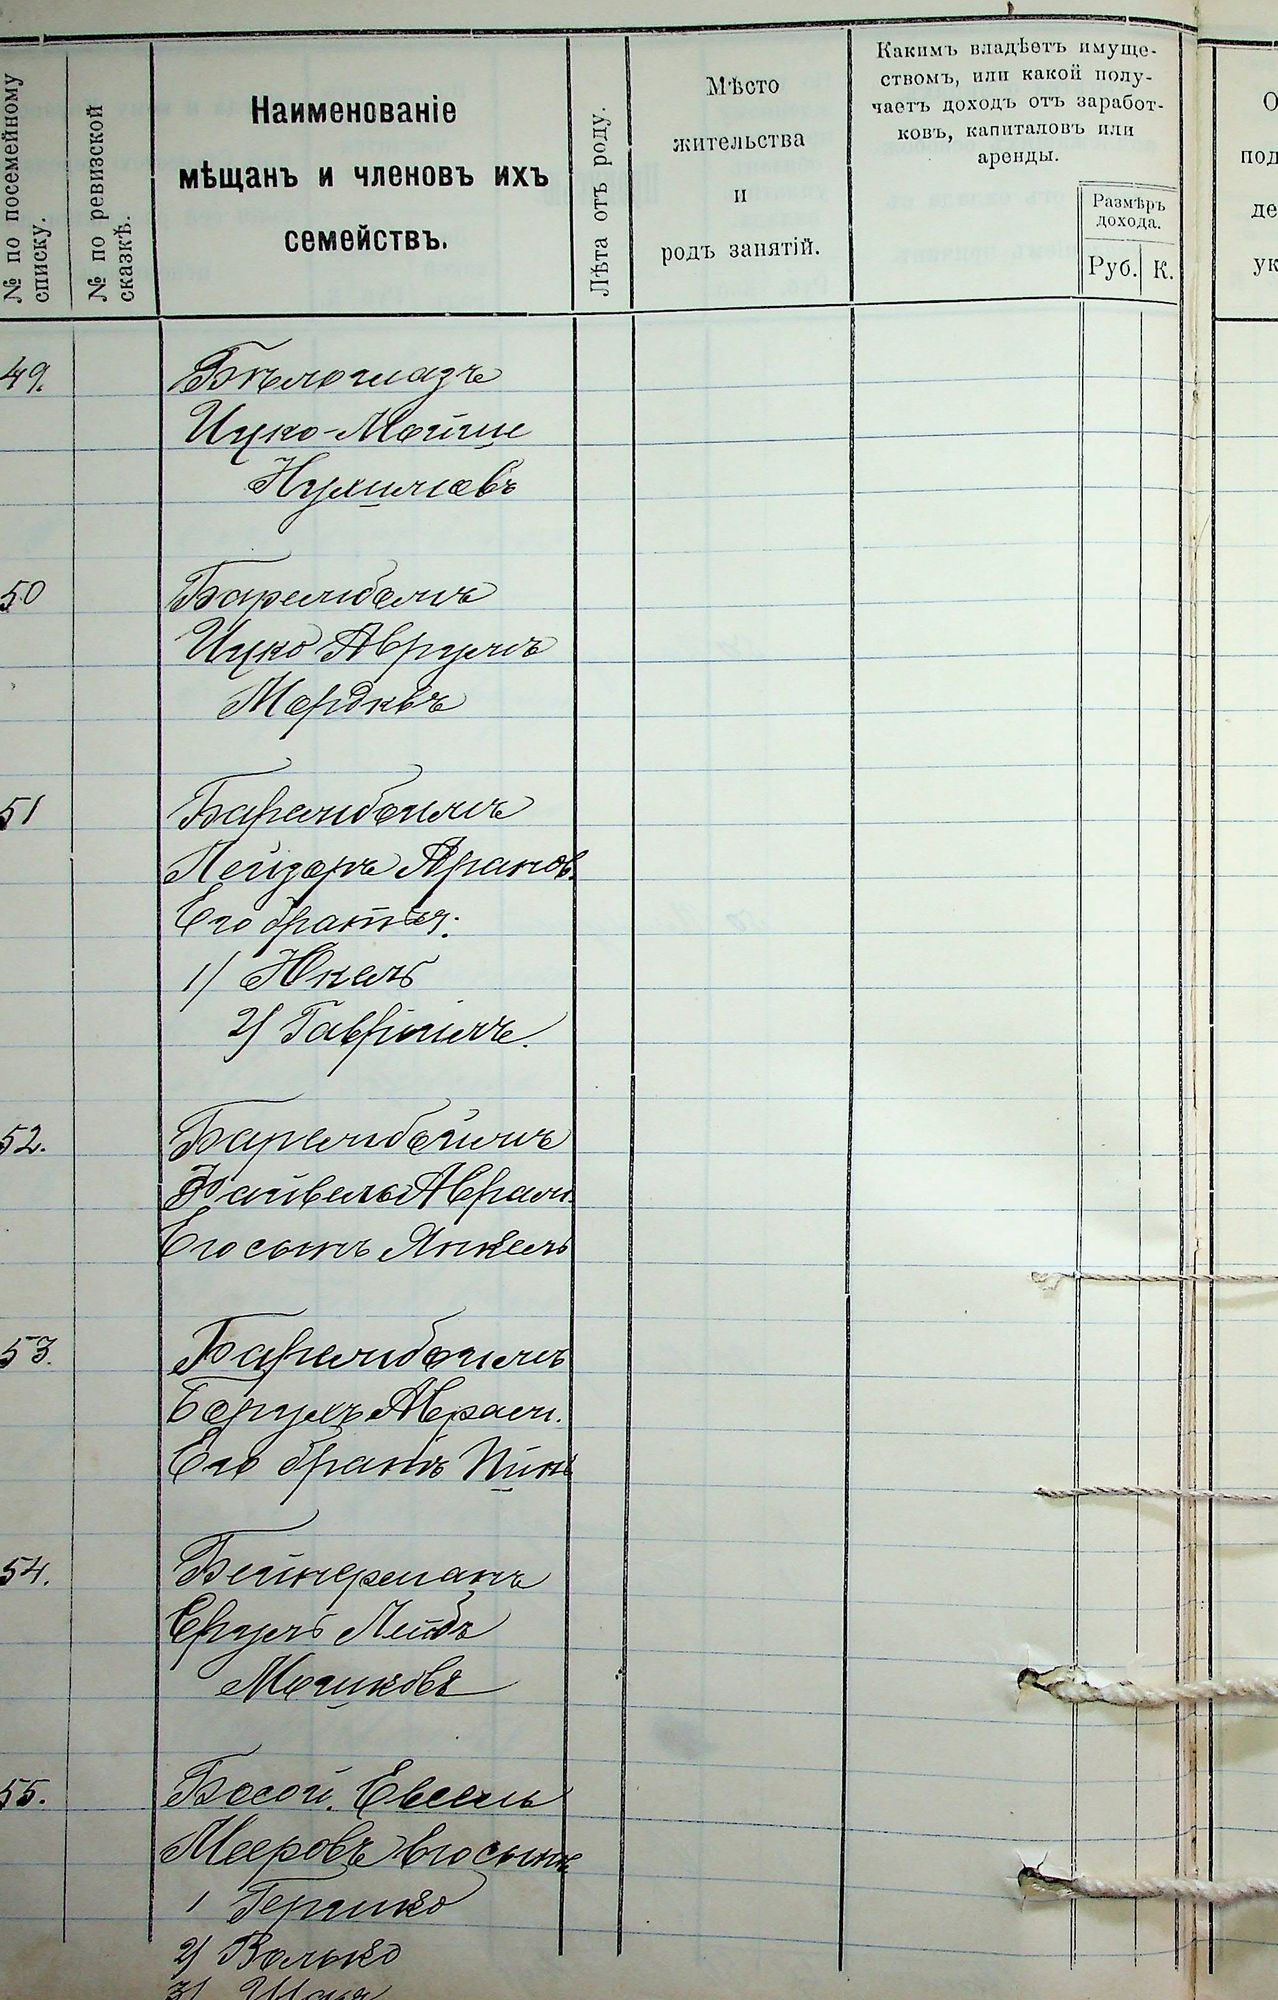 № по посемейному
списку.
№ по ревизской
сказкѣ.
Наименованіе
мѣщанъ и членовъ ихъ
семействъ.
Лѣта отъ роду.
Мѣсто
жительства
и
родъ занятій.
Какимъ владѣетъ имуще-
ствомъ, или какой полу-
чаетъ доходъ отъ заработ-
ковъ, капиталовъ или
аренды.
Размѣръ
дохода.
Руб. К.
О
под
де
ук
49. Бѣлоглазъ
Ицко-Мойше
50 Барембемъ
Ицко Аврумъ
Мордкъ
51 Барембоимъ
Лейзеръ Аранов.
Его братья:
1) Юкель
2) Гавріилъ.
52. Барембоймъ
Файвель Аврам.
Его сынъ Янкель
53. Барембоимъ
Борухъ Аврам.
Его братъ Пинь
54. Бейнерманъ
Сруль Лейбъ
Мошковъ
55. Босой. Евсель
Мееровъ его сынъ
1 Гершко
2) Волько
3) Шая